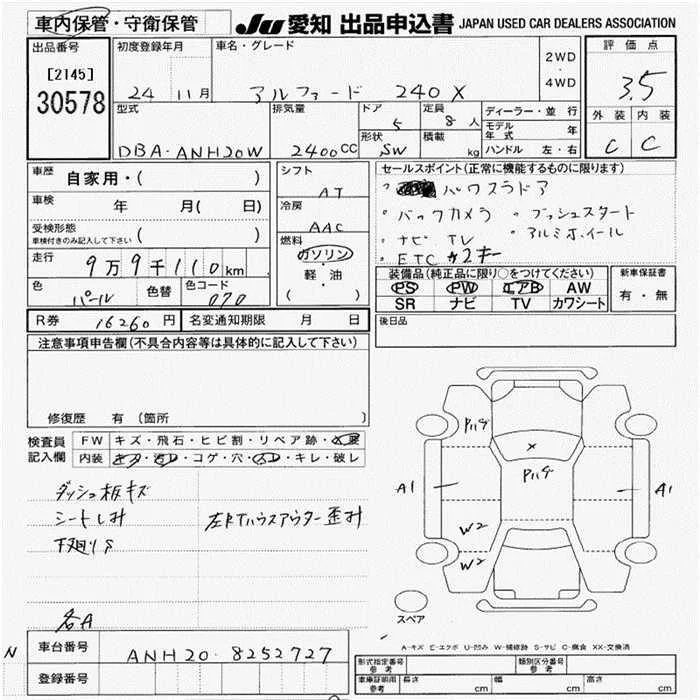 車内保管・守衛保管
JU 愛知 出品申込書 JAPAN USED CAR DEALERS ASSOCIATION
出品番号
[2145]
30578
初度登録年月
24 11月
車名・グレード
アルファード 240X
2WD
・
4WD
評価点
3.5
外装 内装
C C
型式
DBA-ANH20W
排気量
2400CC
ドア
5
形状
SW
定員
8人
積載
kg
ディーラー・並行
モデル年式 年
ハンドル 左・右
車歴
自家用・( )
車検
年 月( 日)
受検形態
車検付きのみ記入して下さい ( )
走行
9万9千110km
色
パール
色替
色コード
070
シフト
AT
冷房
AAC
燃料
ガソリン
・
軽・油
( )
セールスポイント(正常に機能するものに限ります)
パワスラドア
バックカメラ 。プッシュスタート
ナビ TV 。アルミホイール
ETC
装備品(純正品に限り〇をつけてください)
PS PW エアB AW
SR ナビ TV カワシート
新車保証書
有・無
後日品
R券 16260円 名変通知期限 月 日
注意事項申告欄(不具合内容等は具体的に記入して下さい)
修復歴 有(箇所 )
検査員
記入欄
FW キズ・飛石・ヒビ割・リペア跡・
内装 キズ・汚レ・コゲ・穴・・キレ・破レ
ダッシュ板キズ
シートしみ
下廻りS
左Rタイヤハウスアウター歪み
各A
N
車台番号 ANH20-8252727
登録番号
A1
A1
W2
W2
スペア
A-キズ E-エクボ U-凹み W-補修跡 S-サビ C-腐食 XX-交換済
形式指定番号
参考
類別区分番号
参考
車庫証明用
参考
長さ cm
幅 cm
高さ cm